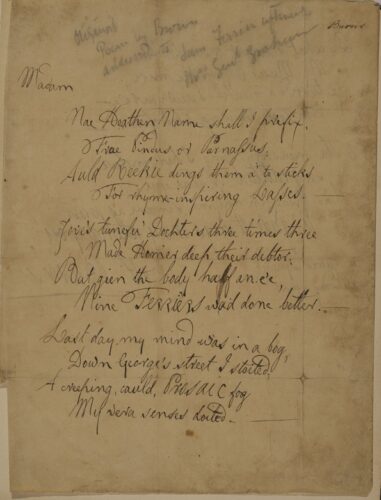 Original
Poem by Burns
addressed to Jean Ferrier
Mrs Genl Graham
Burns
Madam
Nae Heathen Name shall I prefix,
Frae Pindus or Parnassus;
Auld Reekie dings them a' to sticks
For rhyme-inspiring Lasses. —
Jove's tunefu' Dochters three times three
Made Homer deep their debtor;
But gien the body half an e'e,
Nine FERRIERS wad done better. —
Last day my mind was in a bog,
Down George's street I stoited;
A creeping, cauld, PROSAIC fog
My vera senses doited. —